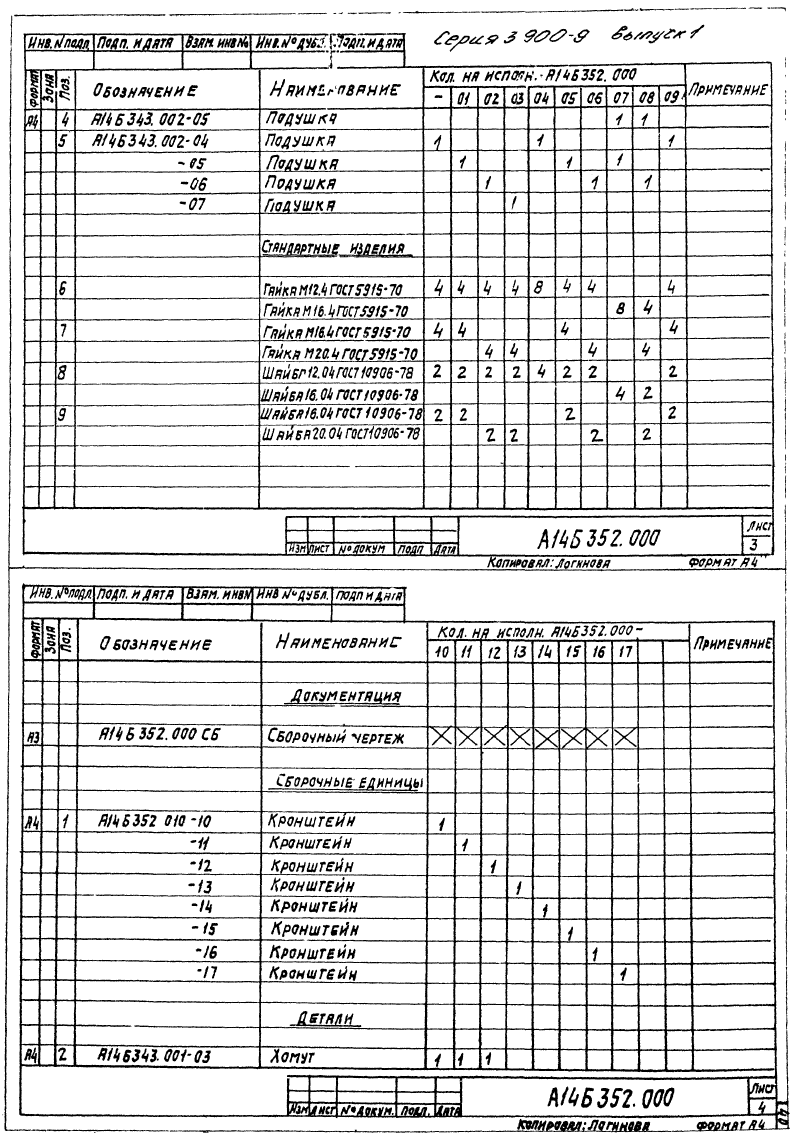 Серия 3 900-9 выпуск 1
Инв. № подл Подп. и дата Взам. инв № Инв. № дубл. Подп. и дата
Формат Зона Поз. Обозначение Наименование Кол. на исполн. - А14Б352.000 Примечание
- 01 02 03 04 05 06 07 08 09
А4 4 А14Б343.002-05 Подушка 1 1
5 А14Б343.002-04 Подушка 1 1 1
-05 Подушка 1 1 1
-06 Подушка 1 1 1
-07 Подушка 1
Стандартные изделия
6 Гайка М12.4 ГОСТ 5915-70 4 4 4 4 8 4 4 4
Гайка М16.4 ГОСТ 5915-70 8 4
7 Гайка М16.4 ГОСТ 5915-70 4 4 4 4
Гайка М20.4 ГОСТ 5915-70 4 4 4 4
8 Шайба 12.04 ГОСТ 10906-78 2 2 2 2 4 2 2 2
Шайба 16.04 ГОСТ 10906-78 4 2
9 Шайба 16.04 ГОСТ 10906-78 2 2 2 2
Шайба 20.04 ГОСТ 10906-78 2 2 2 2
Изм Лист № докум Подп Дата А14Б352.000 Лист 3
Копировал: Логинова Формат А4
Инв. № подл. Подп. и дата Взам. инв № Инв № дубл. Подп и дата
Формат Зона Поз. Обозначение Наименование Кол. на исполн. А14Б352.000- Примечание
10 11 12 13 14 15 16 17
Документация
А3 А14Б352.000 СБ Сборочный чертеж
Сборочные единицы
А4 1 А14Б352 010-10 Кронштейн 1
-11 Кронштейн 1
-12 Кронштейн 1
-13 Кронштейн 1
-14 Кронштейн 1
-15 Кронштейн 1
-16 Кронштейн 1
-17 Кронштейн 1
Детали
А4 2 А14Б343.001-03 Хомут 1 1 1
Изм Лист № докум. Подп. Дата А14Б352.000 Лист 4
Копировал: Логинова Формат А4